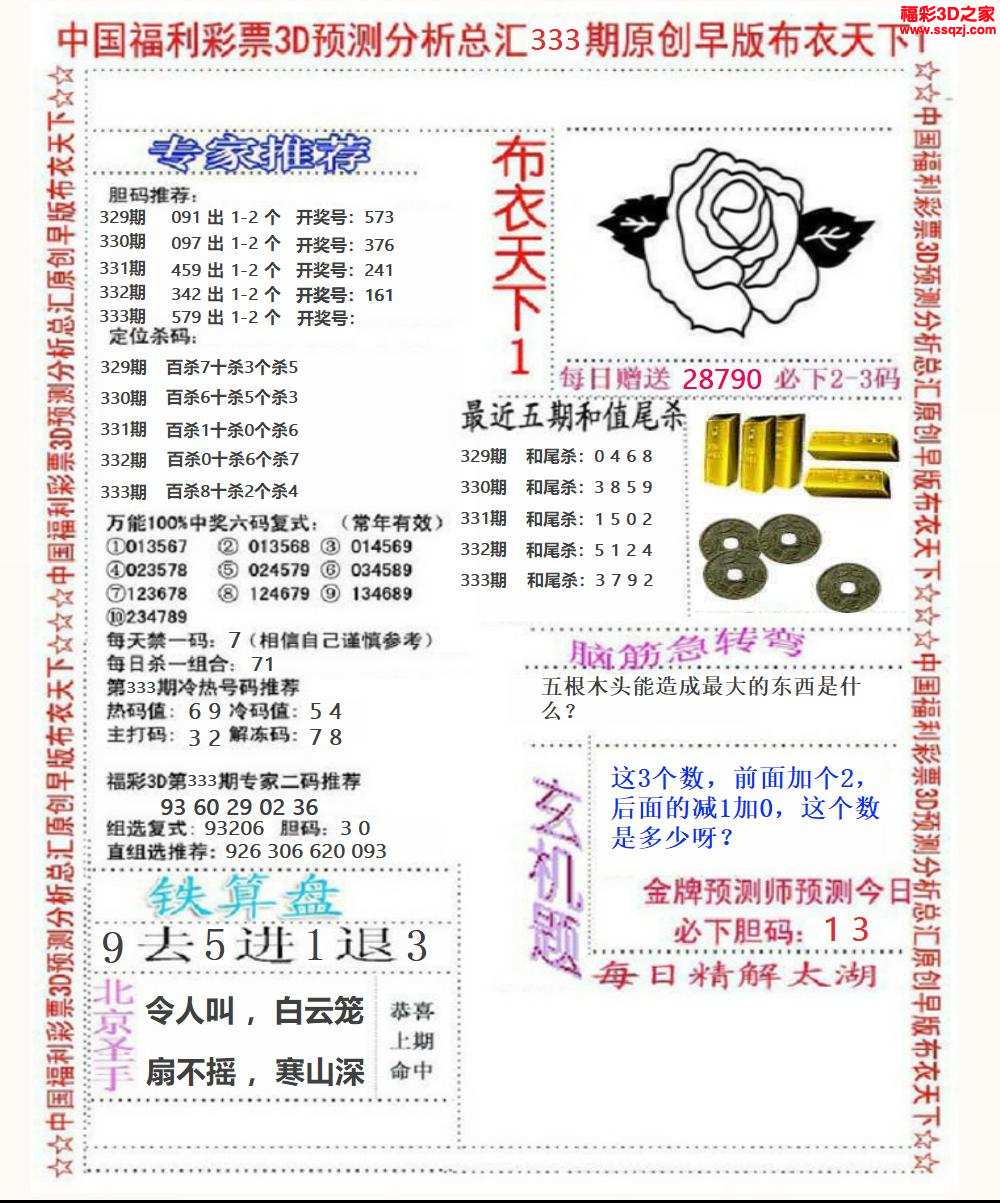 福彩3D之家
www.ssqzj.com
中国福利彩票3D预测分析总汇333期原创早版布衣天下1
☆☆中国福利彩票3D预测分析总汇原创早版布衣天下☆☆☆中国福利彩票3D预测分析总汇原创早版布衣天下☆☆
专家推荐
胆码推荐:
329期 091 出 1-2 个 开奖号: 573
330期 097 出 1-2 个 开奖号: 376
331期 459 出 1-2 个 开奖号: 241
332期 342 出 1-2 个 开奖号: 161
333期 579 出 1-2 个 开奖号:
定位杀码:
329期 百杀7十杀3个杀5
330期 百杀6十杀5个杀3
331期 百杀1十杀0个杀6
332期 百杀0十杀6个杀7
333期 百杀8十杀2个杀4
万能100%中奖六码复式: (常年有效)
①013567 ② 013568 ③ 014569
④023578 ⑤ 024579 ⑥ 034589
⑦123678 ⑧ 124679 ⑨ 134689
⑩234789
每天禁一码: 7 (相信自己谨慎参考)
每日杀一组合: 71
第333期冷热号码推荐
热码值: 6 9 冷码值: 5 4
主打码: 3 2 解冻码: 7 8
福彩3D第333期专家二码推荐
93 60 29 02 36
组选复式: 93206 胆码: 3 0
直组选推荐: 926 306 620 093
铁算盘
9去5进1退3
北京圣手
令人叫，白云笼
扇不摇，寒山深
恭喜
上期
命中
布衣天下1
每日赠送 28790 必下2-3码
最近五期和值尾杀
329期 和尾杀: 0 4 6 8
330期 和尾杀: 3 8 5 9
331期 和尾杀: 1 5 0 2
332期 和尾杀: 5 1 2 4
333期 和尾杀: 3 7 9 2
脑筋急转弯
五根木头能造成最大的东西是什
么?
玄机题
这3个数，前面加个2，
后面的减1加0，这个数
是多少呀?
金牌预测师预测今日
必下胆码: 1 3
每日精解太湖
☆☆中国福利彩票3D预测分析总汇原创早版布衣天下☆☆☆中国福利彩票3D预测分析总汇原创早版布衣天下☆☆